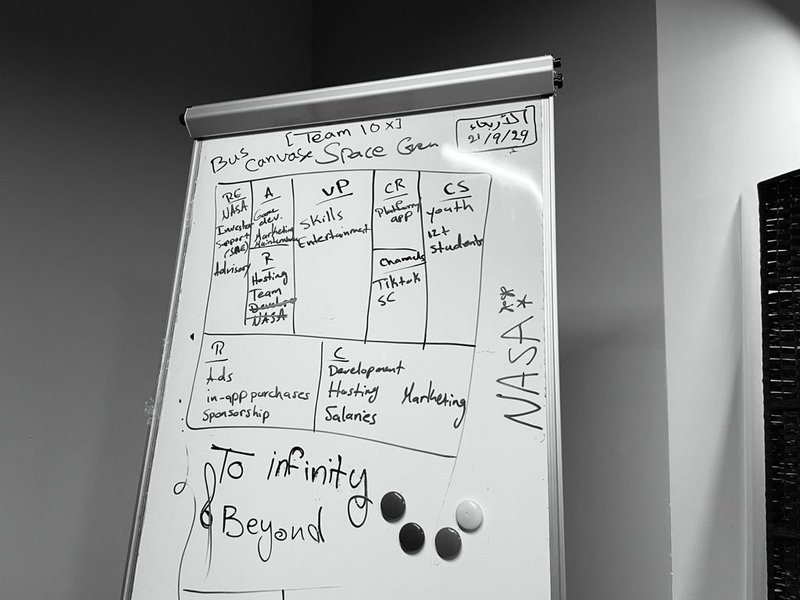 [Team 10X]
Bus Canvase Space Gem
الأربعاء
21/9/29
RE
NASA
Investor
Support
(SME)
Advisory
A
Game
dev.
Marketing
Maintenance
R
Hosting
Team
NASA
VP
Skills
Entertainment
CR
Platform
app
Channels
Tiktok
SC
CS
youth
12+
Students
R
Ads
in-app purchases
Sponsorship
C
Development
Hosting Marketing
Salaries
NASA***
To infinity
& Beyond